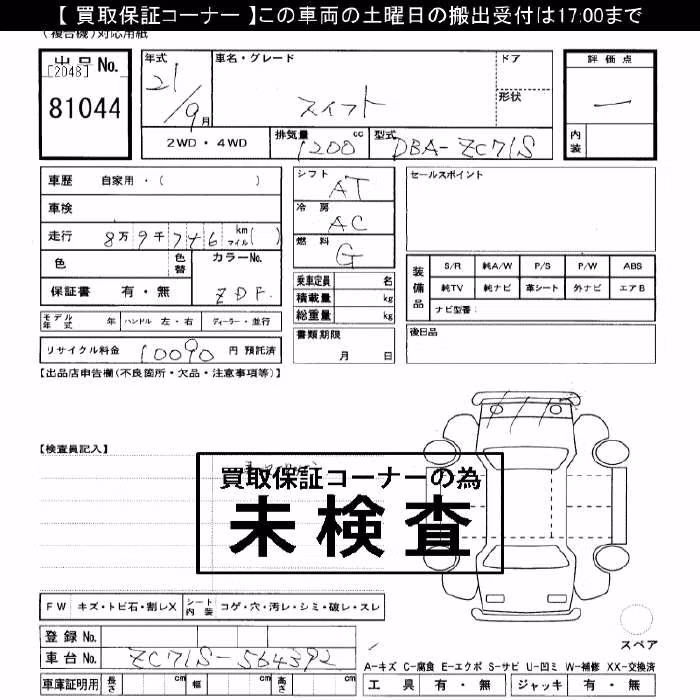 【 買取保証コーナー 】この車両の土曜日の搬出受付は17:00まで
(複合機)対応用紙
出品No.
[2048]
81044
年式
21/9月
車名・グレード
スイフト
ドア
形状
評価点
一
内装
2WD・4WD
排気量
1200 cc
型式
DBA-ZC71S
車歴 自家用・( )
車検
走行 8万9千7十6 km マイル( )
色
色替
カラーNo.
ZDF
保証書 有・無
モデル年式 年
ハンドル 左・右
ディーラー・並行
リサイクル料金 10090 円 預託済
シフト
AT
冷房
AC
燃料
G
乗車定員 名
積載量 kg
総重量 kg
書類期限
月 日
セールスポイント
装備品
S/R 純A/W P/S P/W ABS
純TV 純ナビ 革シート 外ナビ エアB
ナビ型番:
後日品
【出品店申告欄(不良箇所・欠品・注意事項等)】
【検査員記入】
買取保証コーナーの為
未検査
FW キズ・トビ石・割レX
シート内装 コゲ・穴・汚レ・シミ・破レ・スレ
登録No.
車台No. ZC71S-564392
車庫証明用 長さ cm 幅 cm 高さ cm
スペア
A-キズ C-腐食 E-エクボ S-サビ U-凹ミ W-補修 XX-交換済
工具 有・無 ジャッキ 有・無